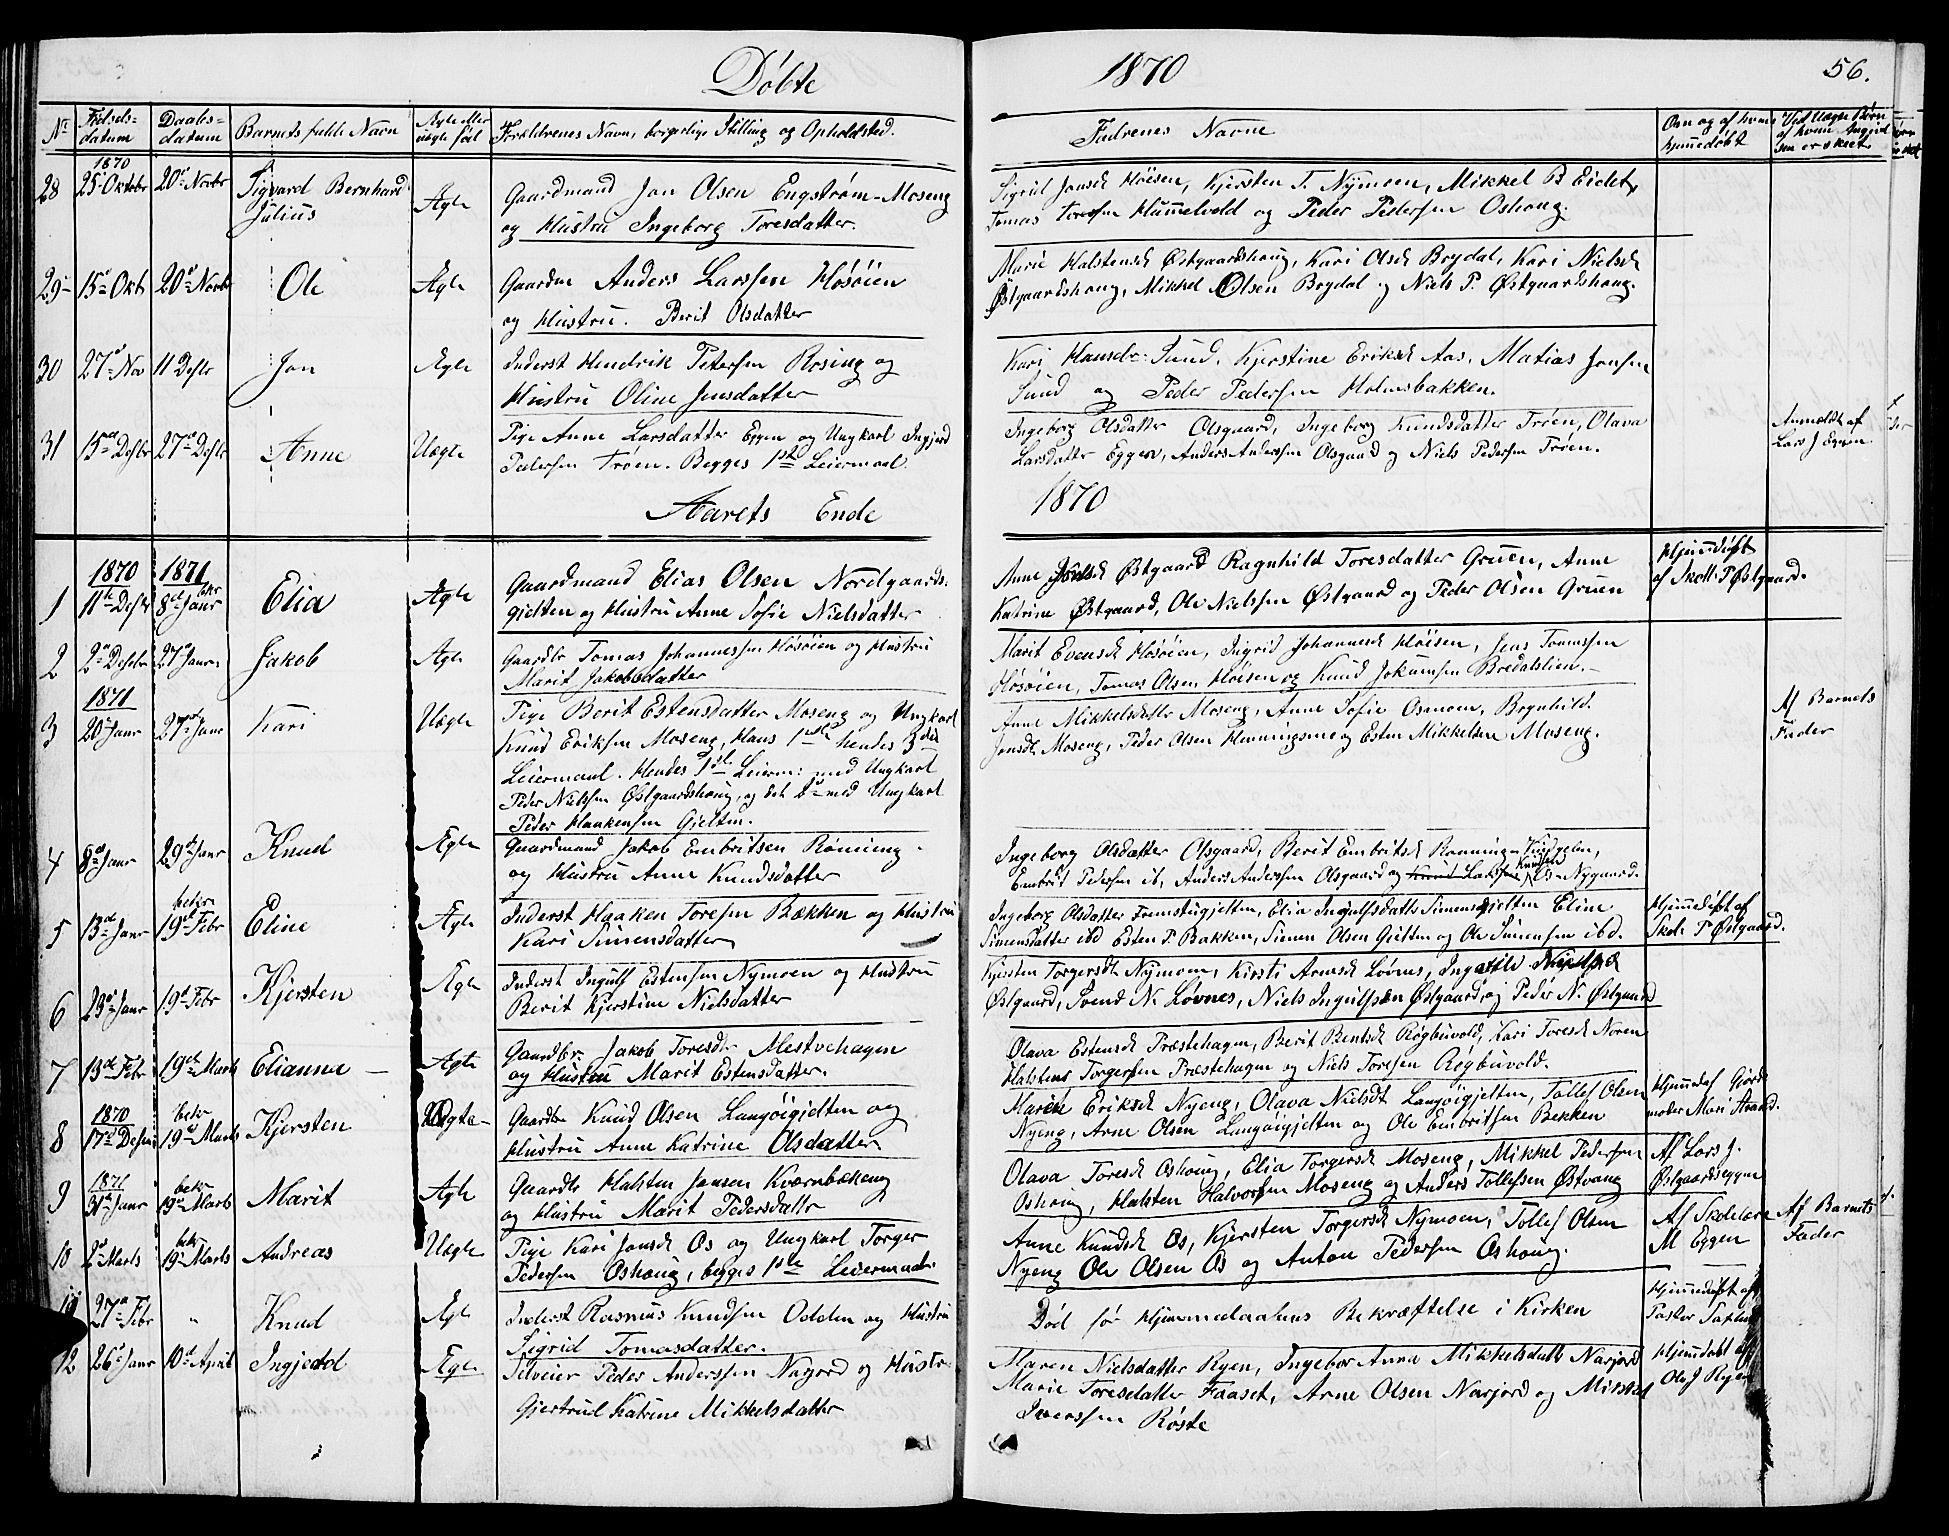 Døbte 1870 56.
No Fødsels-datum Daabs-datum Barnets fulde Navn Ægte eller uægte fød Forældrenes Navn, borgerlige Stilling og Opholdsted. Fadrenes Navne Om og af hvem hjemmedøbt Ved Uægte Børn af hvem Angivelsen er skeet
28 1870 25 Oktobr 20 Novbr Sigvard Bernhard Julius Ægte
Gaardmand Jon Olsen Engstrøm-Moseng
og Hustru Ingeborg Toresdatter.
Sigrid Jonsd Höisen, Kjersten T. Nÿmoen, Mikkel B Eidet,
Tomas Toresen Hummelvold og Peder Pedersen Oshoug.
29 15 Okb 20 Novb Ole Ægte
Gaardm Anders Larssen Høsøien
og Hustru. Berit Olsdatter
Marie Halstensd Østgaardshoug, Kari Olsd Brydal, Kari Nielsd
Østgaardshoug, Mikkel Olsen Brydal og Niels P. Østgaardshoug.
30 27 Nov 11 Desbr Jon Ægte
Inderst Hendrik Petersen Rosing og
Hustru Oline Jensdatter
Kari Hansdr Sund, Kjerstine Eriksd Aas, Matias Jonsen
Sund og Peder Pedersen Holmsbakken.
31 15 Desbr 27 Desbr Anne Uægte
Pige Anne Larsdatter Eggen og Ungkarl Ingjerd
Pedersen Trøen. Begges 1ste Leiermaal.
Ingeborg Olsdatter Olsgaard, Ingeborg Knudsdatter Trøen, Olava
Larsdatter Eggen, Anders Anderssen Olsgaard og Niels Pedersen Trøen.
Anmeldt af
Lars J Eggen.
Aarets Ende 1870
1 1870 11te Desbr 1871 8de Janr bkr Elia Ægte
Gaardmand Elias Olsen Nordgaards-
gjelten og Hustru Anne Sofie Nielsdatter
Anne Jonsd Østgaard Ragnhild Toresdatter Gruen, Anne
Katrine Østgaard, Ole Nielssen Østgaard og Peder Olsen Gruen
Hjemmdöbt
af Skoll. P Østgaard.
2 2 Desbr 27 Janr Jakob Ægte
Gaardbr Tomas Johannessen Høsøien og Hustru
Marit Jakobsdatter
Marit Evensd Høsøien, Ingrid Johannesd Höisen, Jens Tomassen
Høsøien, Tomas Olsen Höisen og Knud Jokumsen Bredalslien.
3 1871 20 Janr 27 Janr Kari Uægte
Pige Berit Estensdatter Moseng og Ungkarl
Knud Eriksen Moseng, Hans 1ste hendes 3die
Leiermaal. Hendes 1ste Leierm: med Ungkarl
Peder Nielssen Østgaardshoug, og det 2 med Ungkarl
Peder Haakensen Gjelten.
Anne Mikkelsdattr Moseng, Anne Sofie Osmoen, Ragnhild
Jonsdt Moseng, Peder Olsen Henningsmo og Esten Mikkelsen Moseng.
Af Barnets
Fader
4 8de Janr 29de Janr Knud Ægte
Gaardmand Jakob Embritsen Rönning
og Hustru Anne Knudsdatter
Ingeborg Olsdatter Olsgaard, Berit Embritsd Ronning
Embret Pedersen ib, Anders Anderssen Olsgaard og Nygaard.
5 13de Janr bekr 19de Febr Eline Ægte
Inderst Haaken Toresen Bækken og Hustru
Kari Simensdatter
Ingeborg Olsdatter Fremstugjelten, Elia Ingulfsdattr Simensgjelten Eline
Simensdatter ibd Esten P. Bakken, Simen Olsen Gjelten og Ole Simensen ibd.
Hjemmedöbt af
Skol. P Østgaard.
6 29 Janr 19de Febr Kjersten Ægte
Inderst Ingulf Estensen Nymoen og Hustru
Berit Kjerstine Nielsdatter
Kjersten Torgersdt Nÿmoen, Kirsti Arnesd Løvnes,
Østgaard, Svend N. Løvnes, Niels Ingulfsen Østgaard, og Peder N. Østgaard
7 13de Febr 19de Marts Elianna Ægte
Gaardbr. Jakob Toresdr Mestvehagen
og Hustru Marit Estensdatter.
Olava Estensd Præstehagen, Berit Bentsd Røgbuvold, Kari Toresd Noren
Halstens Torgersen Præstehagen og Niels Toresen Røgbuvold.
8 1870 17 Desbr bekr 19 Marts Kjersten Ægte
Gaardbr Knud Olsen Langøigjelten og
Hustru Anne Katrine Olsdatter
Maren Eriksd Nyeng, Olava Nielsdt Langøigjelten, Tollef Olsen
Nyeng, Arne Olsen Langøigjelten og Ole Embritsen Bekken
Hjemmed af Gjord
moder Mari Strand.
9 1871 31te Janr bekr 19 Marts Marit Ægte
Gaardbr Halsten Jonsen Kværnbækeng
og Hustru Marit Pedersdattr
Olava Toresd Oshoug, Elia Torgersd Moseng, Mikkel Pedersen
Oshoug, Halsten Halvorsen Moseng og Anders Tollefsen Østvang
Af Lars J.
Østgaardseggen
10 2 Marts bekr 19 Marts Andreas Uægte
Pige Kari Jonsd Os og Ungkarl Torger
Pedersen Oshoug, begges 1ste Leiermaal.
Anne Knudsd Os, Kjersten Torgersd Nymoen, Tollef Olsen
Nyeng Ole Olsen Os og Anton Pedersen Oshoug.
Af Skolelærer
M Eggen
Af Barnets
Fader
11 27 Febr " Knud Ægt
Inderst Rasmus Knudsen Odden og Hustru
Sigrid Tomasdatter.
Död før Hjemmedaabens Bekræftelse i Kirken
Hjemmedöbt af
Paster
12 26 Janr 10 April Ingjedd Ægte
Selveier Peder Anderssen Narjord og Hustr
Gjertrud Katrine Mikkelsdatter
Maren Nielsdatter Ryen, Ingebor Anna Mikkelsdattr Narjord
Marie Toresdatter Faaset, Arne Olsen Narjord og Mikkel
Iverssen Röste
Hjemdöbt af
Ole J Ryen